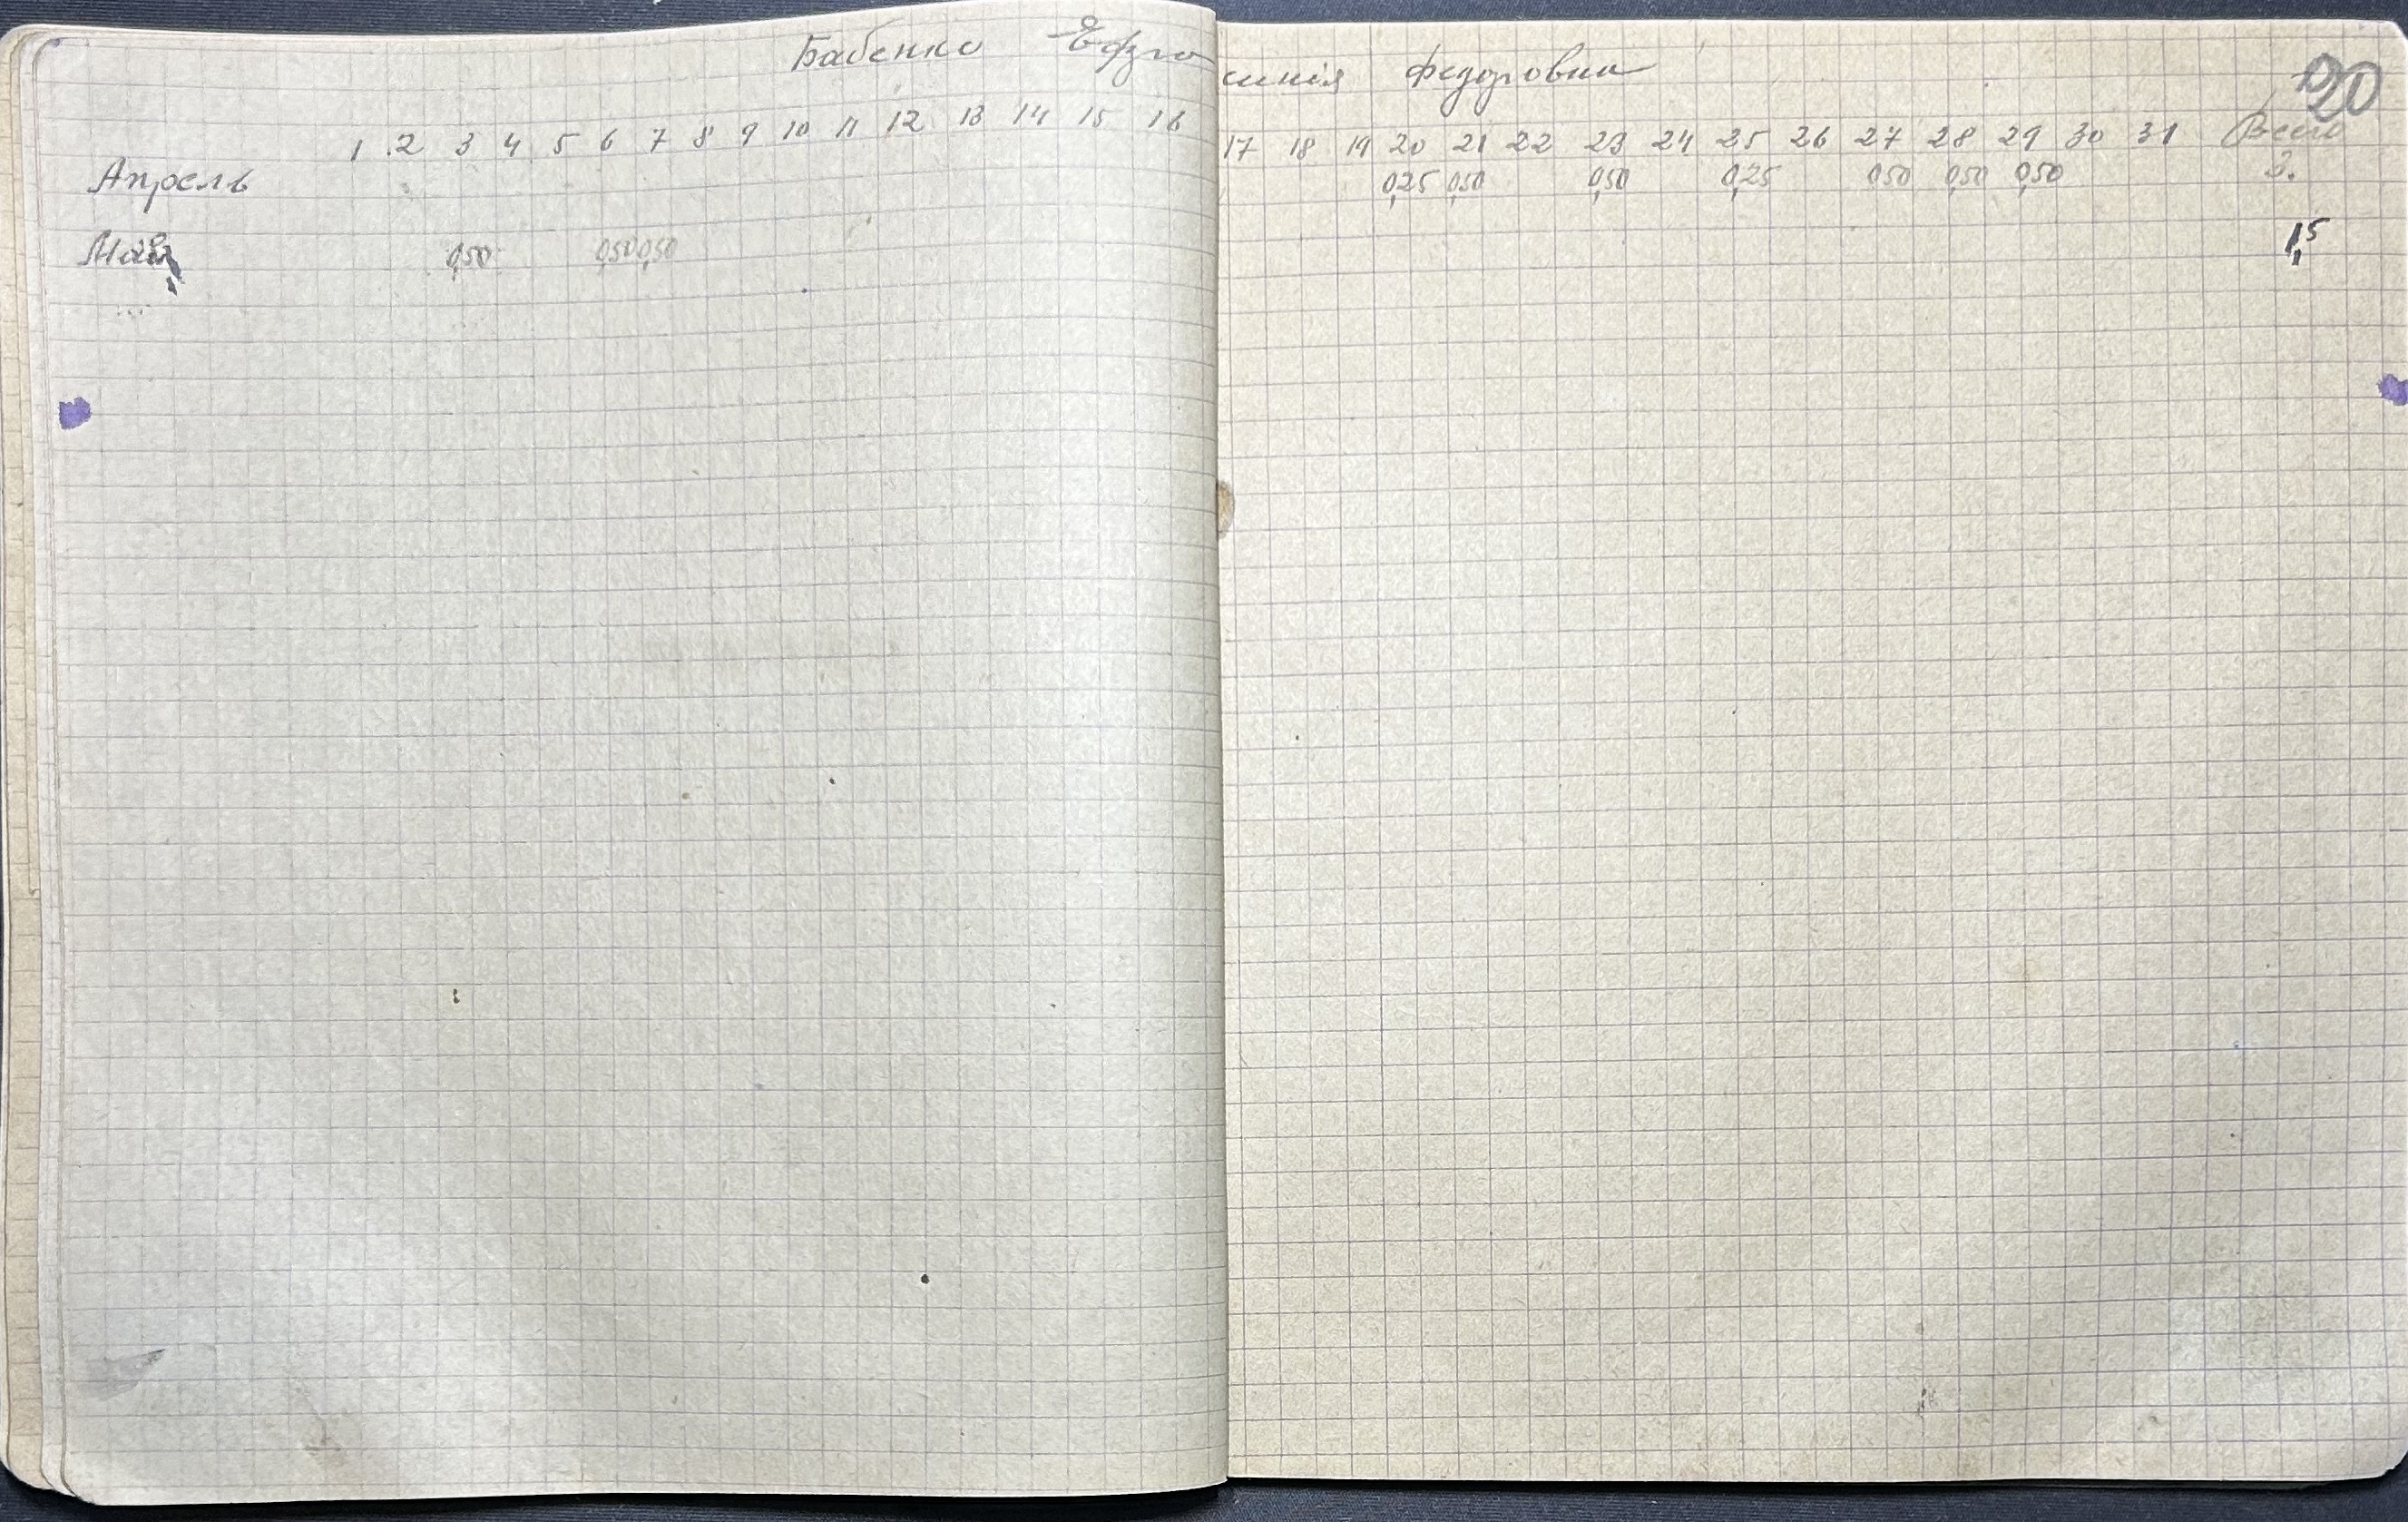 Бабенко Ефросинія Федоровна
20
1 2 3 4 5 6 7 8 9 10 11 12 13 14 15 16 17 18 19 20 21 22 23 24 25 26 27 28 29 30 31 Всего
Апрель 0,25 0,50 0,50 0,25 0,50 0,50 0,50 3.
Май 0,50 0,50 0,50 1,5